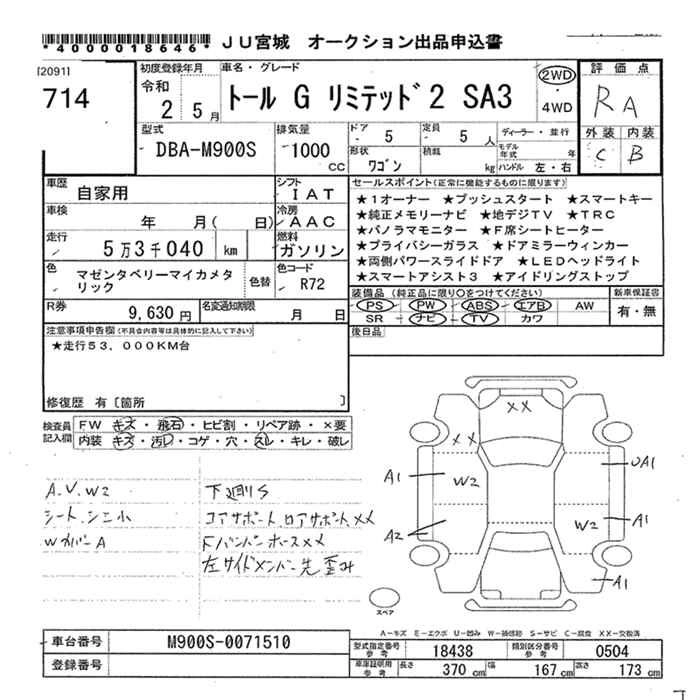 *4000018646* JU宮城 オークション出品申込書
[2091]
714
初度登録年月
令和
2 5月
車名・グレード
トール G リミテッド2 SA3
2WD
・
4WD
評価点
RA
外装 内装
C B
型式
DBA-M900S
排気量
1000
CC
ドア
5
定員
5 人
形状
ワゴン
積載
kg
ディーラー・並行
モデル年式 年
ハンドル 左・右
車歴
自家用
シフト
IAT
車検
年 月( 日)
冷房
AAC
走行
5万3千040 km
燃料
ガソリン
色
マゼンタベリーマイカメタリック
色替
色コード
R72
R券
9,630円
名変通知期限
月 日
セールスポイント(正常に機能するものに限ります)
★1オーナー ★プッシュスタート ★スマートキー
★純正メモリーナビ ★地デジTV ★TRC
★パノラマモニター ★F席シートヒーター
★プライバシーガラス ★ドアミラーウィンカー
★両側パワースライドドア ★LEDヘッドライト
★スマートアシスト3 ★アイドリングストップ
装備品(純正品に限り○をつけてください)
PS PW ABS エアB AW
SR ナビ TV カワ
新車保証書
有・無
後日品
注意事項申告欄(不具合内容等は具体的に記入して下さい)
★走行53,000KM台
修復歴 有〔箇所 〕
検査員記入欄
FW キズ・飛石・ヒビ割・リペア跡・×要
内装 キズ・汚レ・コゲ・穴・スレ・キレ・破レ
A.V.W2
シート.シミ小
WカバーA
下廻りS
コアサポート ロアサポート××
FバンパーホースXX
左サイドメンバー先歪み
XX
XX
A1
W2
A2
UA1
W2
A1
A1
スペア
A-キズ E-エクボ U-凹み W-補修跡 S-サビ C-腐食 XX-交換済
車台番号
M900S-0071510
登録番号
型式指定番号
参考
18438
類別区分番号
参考
0504
車庫証明用
参考
長さ
370 cm
幅
167 cm
高さ
173 cm